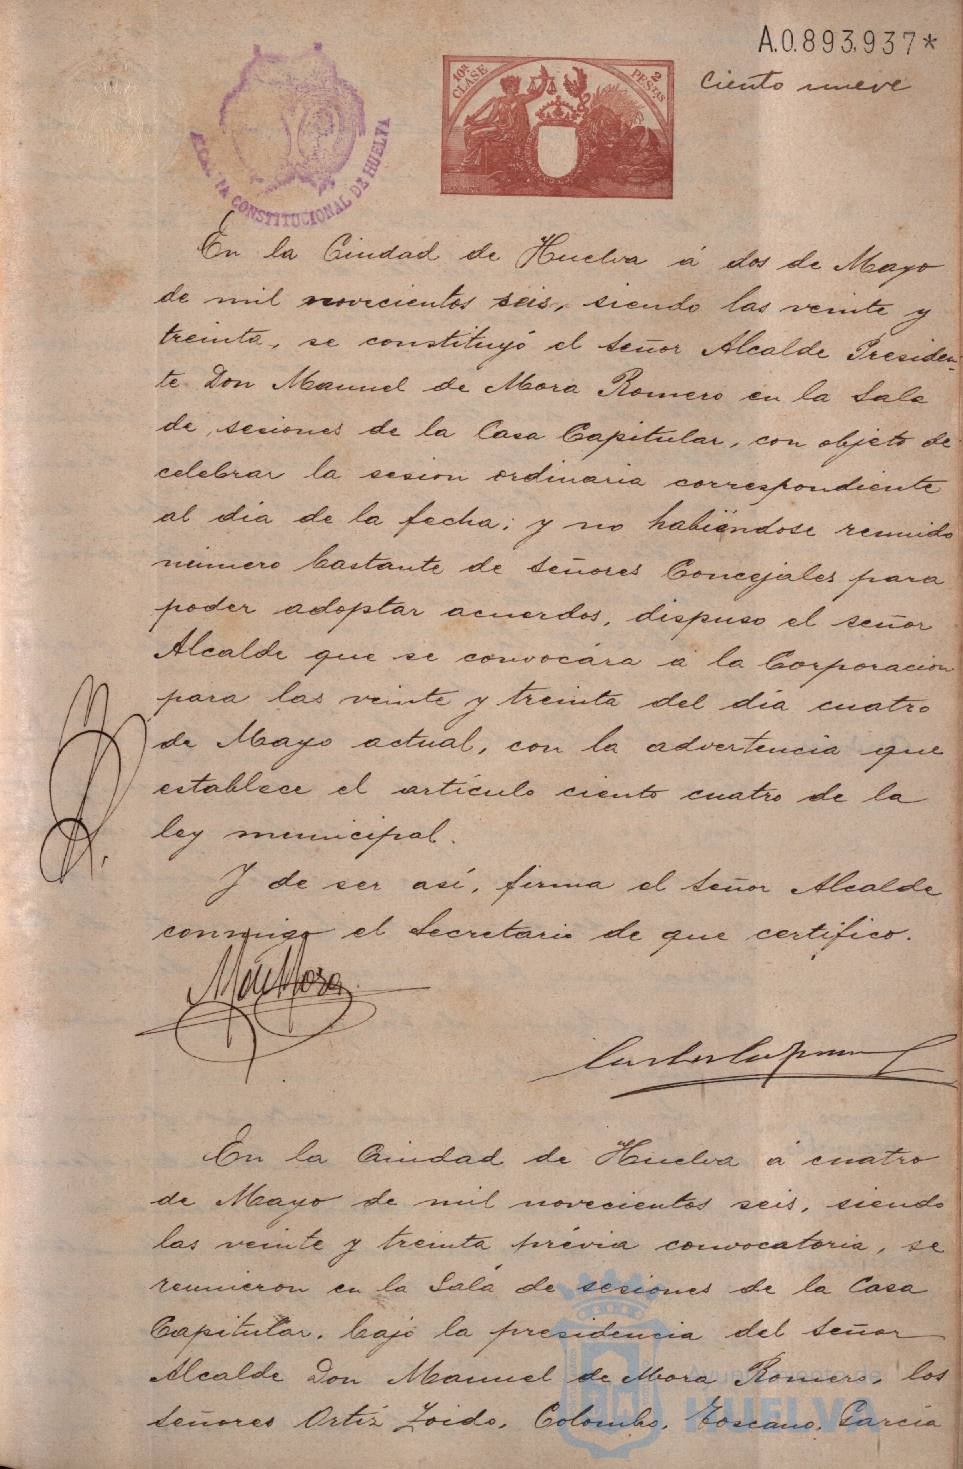 A.0.893,937*
10ª CLASE
2 PESTAS
Ciento nueve
CONSTITUCIONAL DE HUELVA
En la Ciudad de Huelva á dos de Mayo
de mil novecientos seis, siendo las veinte y
treinta, se constituyó el Señor Alcalde Presiden-
te Don Manuel de Mora Romero en la Sala
de sesiones de la Casa Capitular, con objeto de
celebrar la sesion ordinaria correspondiente
al día de la fecha; y no habiéndose reunido
número bastante de Señores Concejales para
poder adoptar acuerdos, dispuso el señor
Alcalde que se convocára a la Corporación
para las veinte y treinta del día cuatro
de Mayo actual, con la advertencia que
establece el artículo ciento cuatro de la
ley municipal.
Y de ser así, firma el Señor Alcalde
conmigo el Secretario de que certifico.
M de Mora
En la Ciudad de Huelva á cuatro
de Mayo de mil novecientos seis, siendo
las veinte y treinta prévia convocatoria, se
reunieron en la Sala de sesiones de la Casa
Capitular, bajo la presidencia del Señor
Alcalde Don Manuel de Mora Romero, los
Señores Ortiz Zoido, Colombo, Toscano, García
Ayuntamiento de
HUELVA